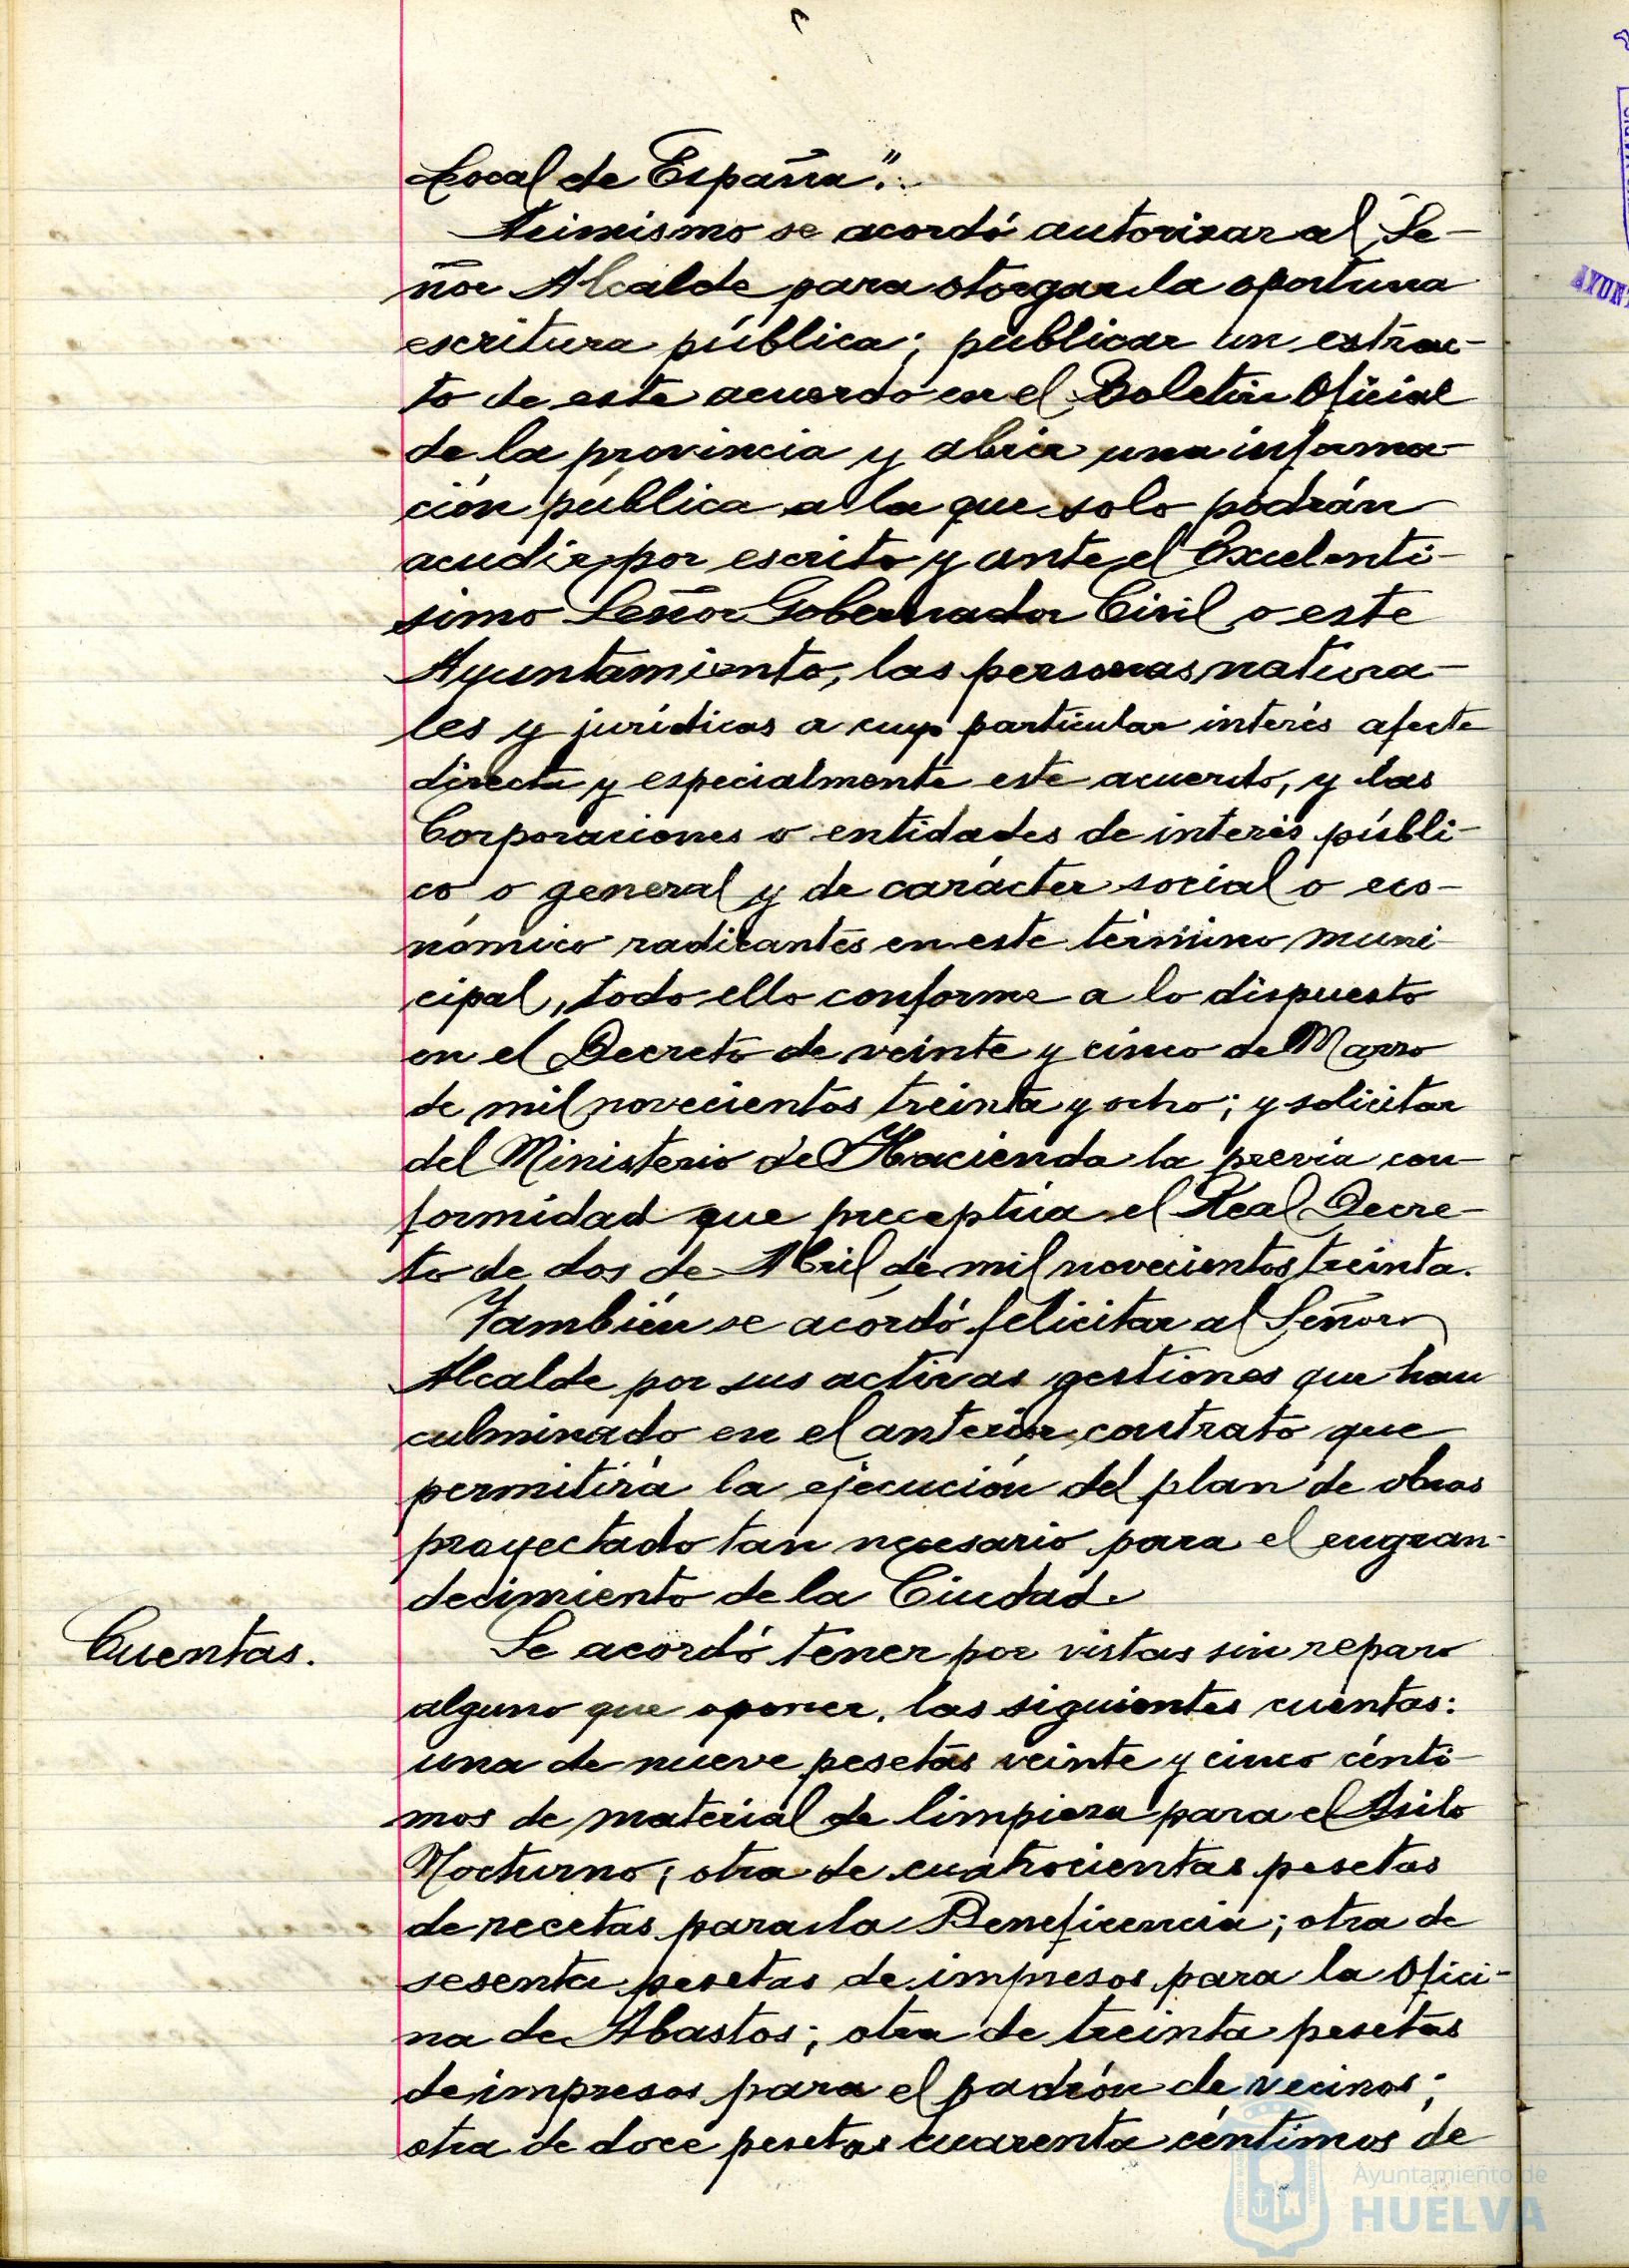 Local de España".
Asimismo se acordó autorizar al Se-
ñor Alcalde para otorgar la oportuna
escritura pública; publicar un extrac-
to de este acuerdo en el Boletín Oficial
de la provincia y abrir una informa-
ción pública a la que solo podrán
acudir por escrito y ante el Excelentí-
simo Señor Gobernador Civil o este
Ayuntamiento, las personas natura-
les y jurídicas a cuyo particular interés afecte
directa y especialmente este acuerdo, y las
Corporaciones o entidades de interés públi-
co o general y de carácter social o eco-
nómico radicantes en este término muni-
cipal, todo ello conforme a lo dispuesto
en el Decreto de veinte y cinco de Marzo
de mil novecientos treinta y ocho; y solicitar
del Ministerio de Hacienda la previa con-
formidad que preceptúa el Real Decre-
to de dos de Abril de mil novecientos treinta.
También se acordó felicitar al Señor
Alcalde por sus activas gestiones que han
culminado en el anterior contrato que
permitirá la ejecución del plan de obras
proyectado tan necesario para el engran-
decimiento de la Ciudad.
Cuentas.
Se acordó tener por vistas sin reparo
alguno que oponer, las siguientes cuentas:
una de nueve pesetas veinte y cinco cénti-
mos de material de limpieza para el Asilo
Nocturno; otra de cuatrocientas pesetas
de recetas para la Beneficencia; otra de
sesenta pesetas de impresos para la Ofici-
na de Abastos; otra de treinta pesetas
de impresos para el padrón de vecinos;
otra de doce pesetas cuarenta céntimos de
Ayuntamiento de
HUELVA